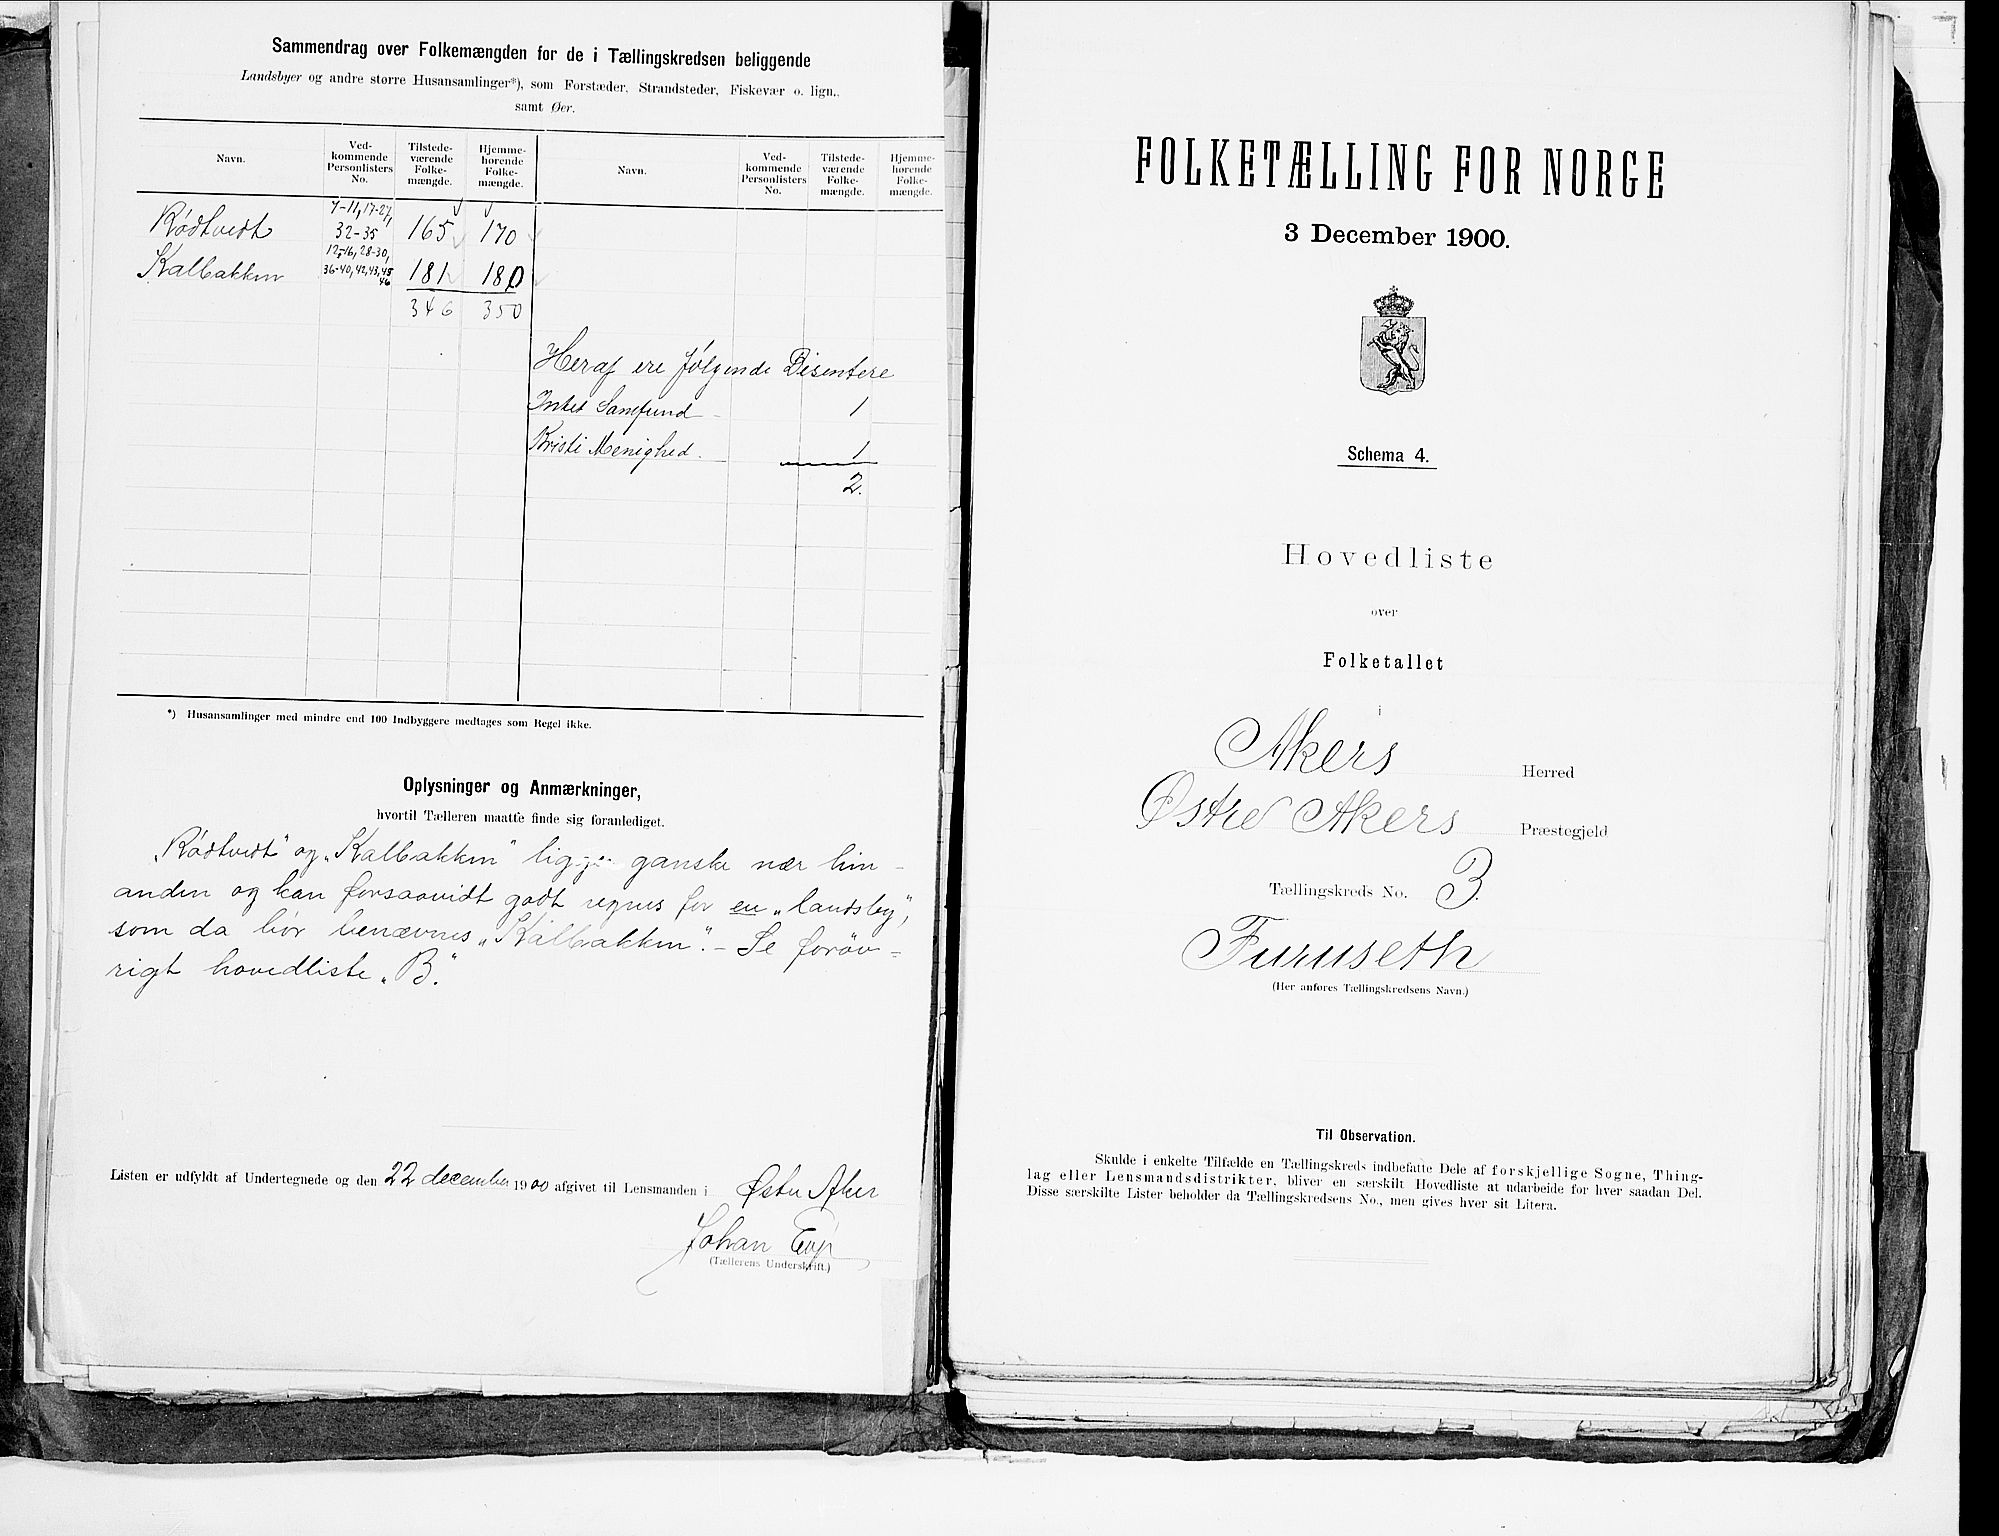 Sammendrag over Folkemængden for de i Tællingskredsen beliggende
Landsbyer og andre større Husansamlinger*), som Forstæder, Strandsteder, Fiskevær o. lign.,
samt Øer.
Navn.
Ved-
kommende
Personlisters
No.
Tilstede-
værende
Folke-
mængde.
Hjemme-
hørende
Folke-
mængde.
Navn.
Ved-
kommende
Personlisters
No.
Tilstede-
værende
Folke-
mængde.
Hjemme-
hørende
Folke-
mængde.
7-11, 17-27,
Rødtvedt 32-35 165 170
12-16, 28-30,
Kalbakken 36-40, 42, 43, 45 181 180
46
346 350
Heraf ere følgende Disentere
Intet Samfund 1
Kristi Menighed. 1
2.
*) Husansamlinger med mindre end 100 Indbyggere medtages som Regel ikke.
Oplysninger og Anmærkninger,
hvortil Tælleren maatte finde sig foranlediget.
„Rødtvedt" og „Kalbakken" ligger ganske nær hin-
anden og kan forsaavidt godt regnes for en „landsby",
som da bør benævnes „Kalbakken". - Se forøv-
rigt hovedliste „B".
Listen er udfyldt af Undertegnede og den 22 december 1900 afgivet til Lensmanden i Østre Aker
Johan
(Tællerens Underskrift.)
FOLKETÆLLING FOR NORGE
3 December 1900.
Schema 4.
Hovedliste
over
Folketallet
i
Akers Herred
Østre Akers Præstegjeld
Tællingskreds No. 3.
Furuseth
(Her anføres Tællingskredsens Navn.)
Til Observation.
Skulde i enkelte Tilfælde en Tællingskreds indbefatte Dele af forskjellige Sogne, Thing-
lag eller Lensmandsdistrikter, bliver en særskilt Hovedliste at udarbeide for hver saadan Del.
Disse særskilte Lister beholder da Tællingskredsens No., men gives hver sit Litera.